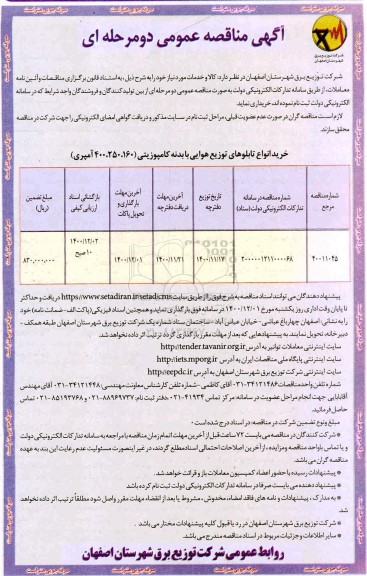 آگهی مناقصه عمومی دو مرحله ای
شرکت توزیع برق
شهرستان اصفهان
شرکت توزیع برق شهرستان اصفهان در نظر دارد: کالا و خدمات مورد نیاز خود را به شرح ذیل، به استناد قانون برگزاری مناقصات و آئین نامه
معاملات، از طریق سامانه تدارکات الکترونیکی دولت به صورت مناقصه عمومی دو مرحله ای از بین تولید کنندگان و فروشندگان واجد شرایط که در سامانه
الکترونیکی دولت ثبت نام نموده اند، خریداری نماید.
لازم است مناقصه گران در صورت عدم عضویت قبلی، مراحل ثبت نام در سایت مذکور و دریافت گواهی امضای الکترونیکی را جهت شرکت در مناقصه
محقق سازند.
خرید انواع تابلوهای توزیع هوایی با بدنه کامپوزیتی (۴۰۰،۲۵۰،۱۶۰ آمپری)
شماره مناقصه مرجع
شماره مناقصه در سامانه تدارکات الکترونیکی دولت (ستاد)
تاریخ توزیع دفترچه
آخرین مهلت دریافت دفترچه
آخرین مهلت بارگذاری و تحویل پاکات
بازگشائی اسناد ارزیابی کیفی
مبلغ تضمین (ریال)
۴۰۰۱۱۰۴۵
۲۰۰۰۰۰۱۲۱۱۰۰۰۰۶۸
۱۴۰۰/۱۱/۱۴
۱۴۰۰/۱۱/۲۱
۱۴۰۰/۱۲/۰۱
۱۴۰۰/۱۲/۰۲
۱۰ صبح
۸۳۰,۰۰۰,۰۰۰
پیشنهاد دهندگان می توانند اسناد مناقصه به شرح فوق را از طریق سایت https://www.setadiran.ir/setad/cms دریافت و حداکثر
تا پایان وقت اداری روز یکشنبه مورخ ۱۴۰۰/۱۲/۰۱ در سامانه فوق بارگذاری نماید و همچنین اسناد فیزیکی (پاکت الف - ضمانت نامه) خود
را به نشانی: اصفهان چهارباغ عباسی - خیابان عباس آباد - ساختمان ستاد شماره یک شرکت توزیع برق شهرستان اصفهان طبقه همکف -
دبیرخانه، تحویل نمایند. به پیشنهادهایی که بعد از مهلت مقرر بارگذاری گردد ترتیب اثر داده نخواهد شد.
سایت اینترنتی معاملات توانیر به آدرس http://tender.tavanir.org.ir
سایت اینترنتی پایگاه ملی مناقصات ایران به آدرس http://iets.mporg.ir
سایت اینترنتی شرکت توزیع برق شهرستان اصفهان به آدرس http://eepdc.ir
حاصل فرمائید.
مبلغ و نوع تضمین شرکت در مناقصه: در اسناد درج شده است.
* شرکت کنندگان در مناقصه می بایست ۷۲ ساعت قبل از آخرین مهلت اتمام زمان مناقصه با مراجعه به سامانه تدارکات الکترونیکی دولت
و یا تماس با واحد مناقصه و مزایده، از آخرین اصلاحات احتمالی اسناد مطلع گردند، در غیر اینصورت مسئولیت عدم رعایت این بند به عهده
مناقصه گران می باشد.
* پیشنهادات رسیده با حضور اعضاء کمیسیون معاملات باز و قرائت خواهد شد.
* پیشنهاد دهنده می بایست صرفا در سامانه تدارکات الکترونیکی دولت ثبت نام کرده باشد
* به مدارک، پیشنهادات و نامه های فاقد امضاء، مخدوش، مشروط یا بعد از انقضاء مهلت مقرر واصل شود مطلقا ترتیب اثر داده نخواهد
شد.
* شرکت توزیع برق شهرستان اصفهان در رد یا قبول کلیه پیشنهادات مختار می باشد.
* سایر اطلاعات و جزئیات مربوط در اسناد مناقصه مندرج می باشد.
روابط عمومی شرکت توزیع برق شهرستان اصفهان